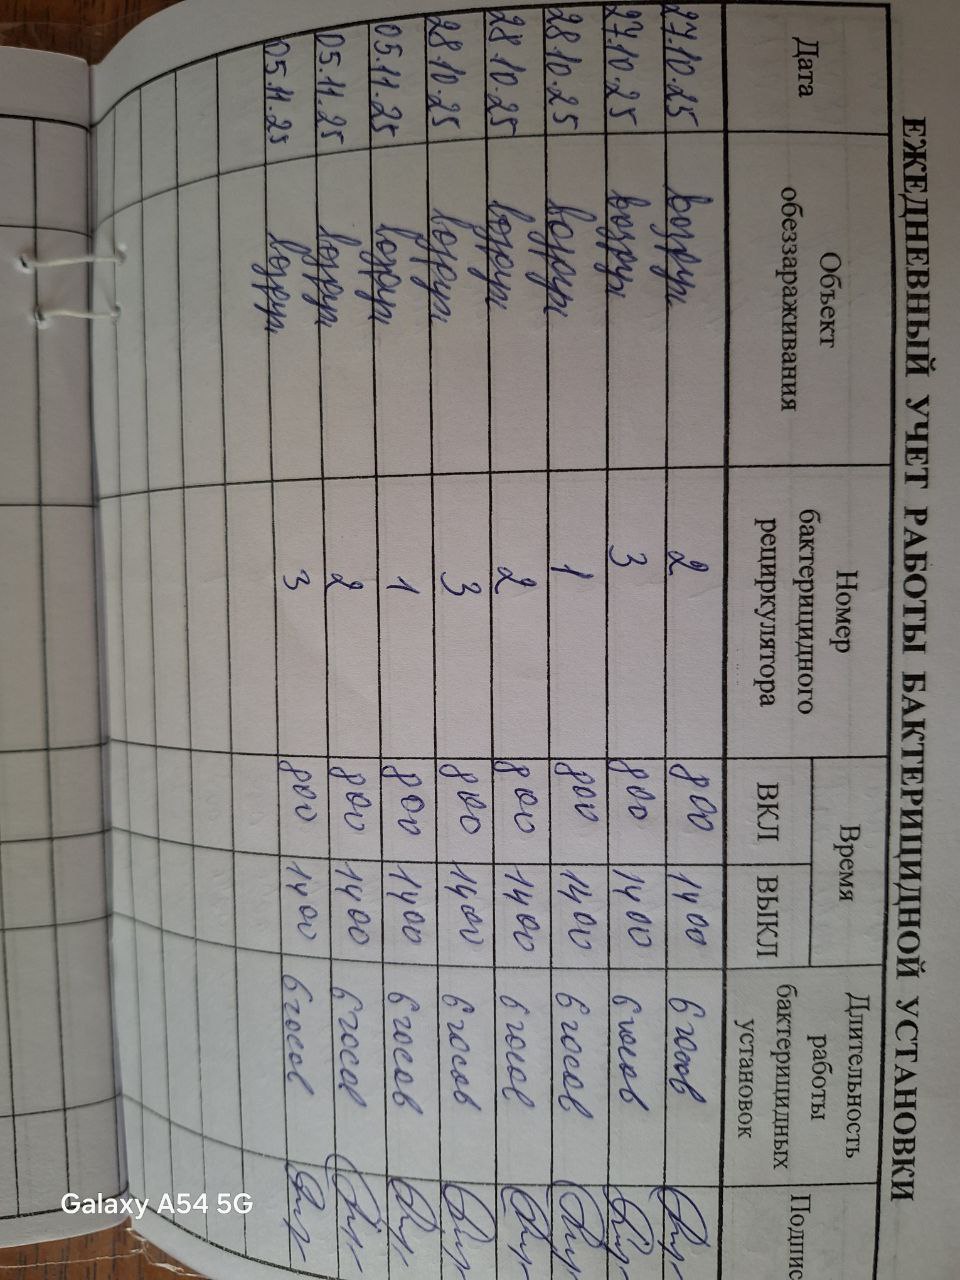 ЕЖЕДНЕВНЫЙ УЧЕТ РАБОТЫ БАКТЕРИЦИДНОЙ УСТАНОВКИ
Дата Объект обеззараживания Номер бактерицидного рециркулятора Время Длительность работы бактерицидных установок Подпис
ВКЛ ВЫКЛ
27.10.25 воздух 2 800 1400 6 часов
27.10.25 воздух 3 800 1400 6 часов
28.10.25 воздух 1 800 1400 6 часов
28.10.25 воздух 2 800 1400 6 часов
28.10.25 воздух 3 800 1400 6 часов
05.11.25 воздух 1 800 1400 6 часов
05.11.25 воздух 2 800 1400 6 часов
05.11.25 воздух 3 800 1400 6 часов
Galaxy A54 5G